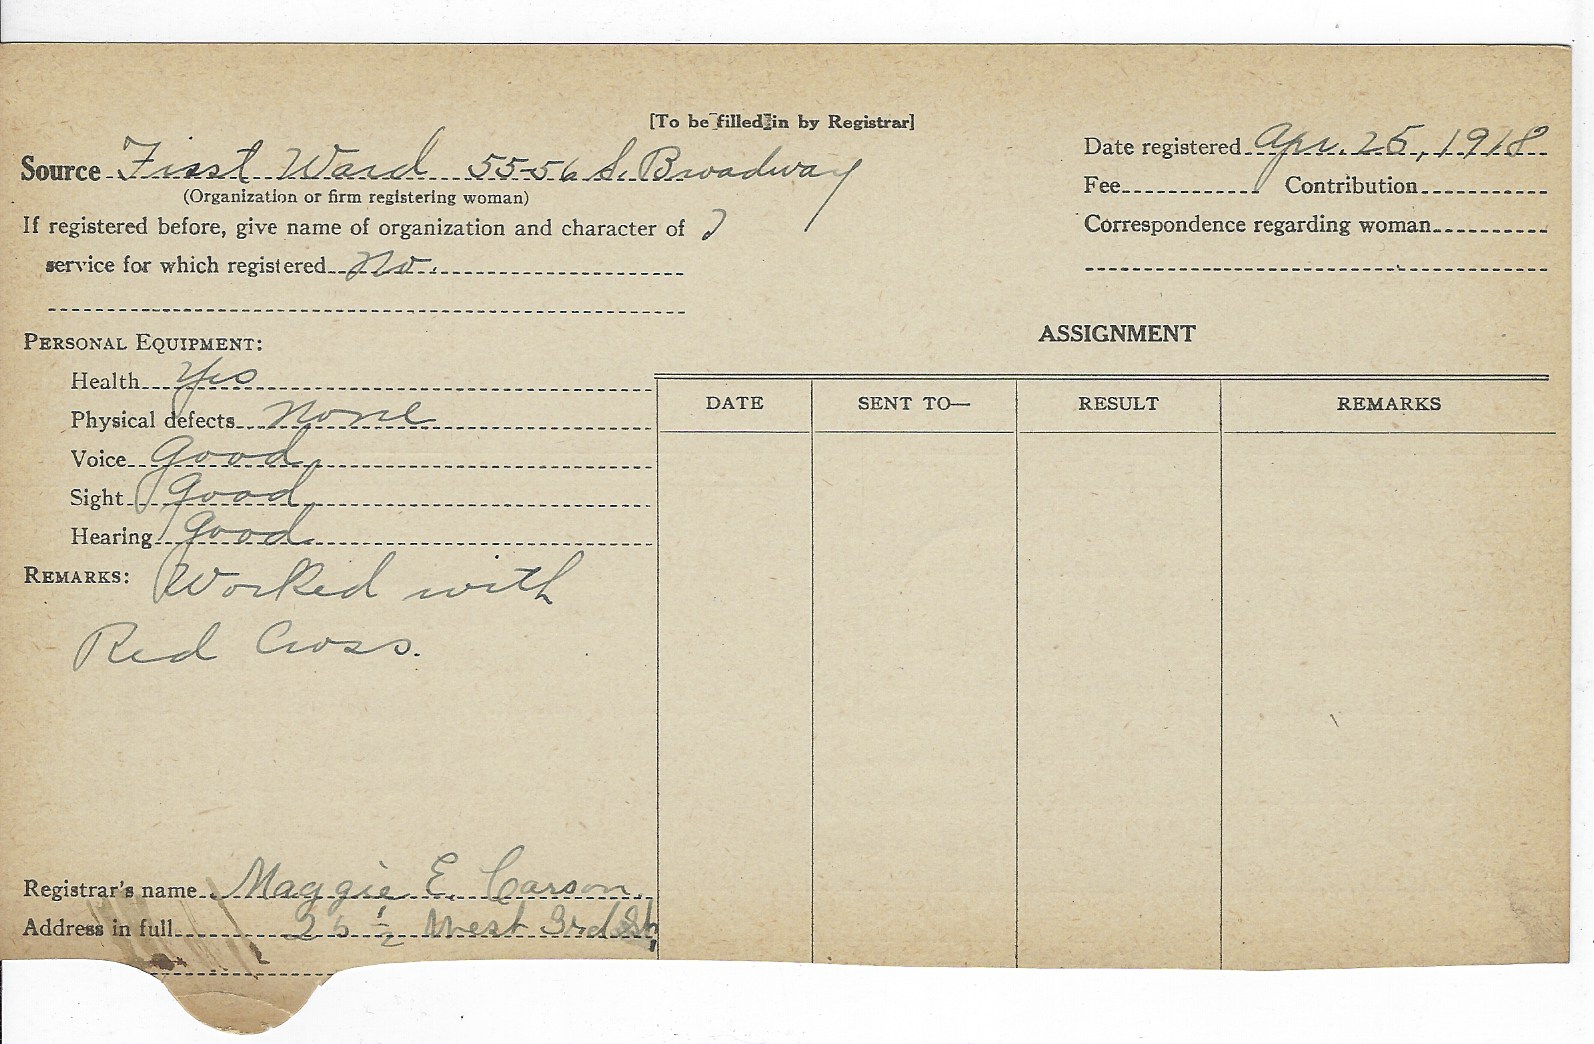 [To be filled in by Registrar]
Source First Ward 55-56 S. Broadway
(Organization or firm registering woman)
Date registered Apr. 25, 1918
Fee Contribution
If registered before, give name of organization and character of
Correspondence regarding woman
service for which registered No.
PERSONAL EQUIPMENT:
ASSIGNMENT
Health Yes
DATE SENT TO— RESULT REMARKS
Physical defects None
Voice Good
Sight Good
Hearing Good
REMARKS: Worked with
Red Cross.
Registrar's name Maggie E. Carson.
Address in full 26 1/2 West 3rd St,